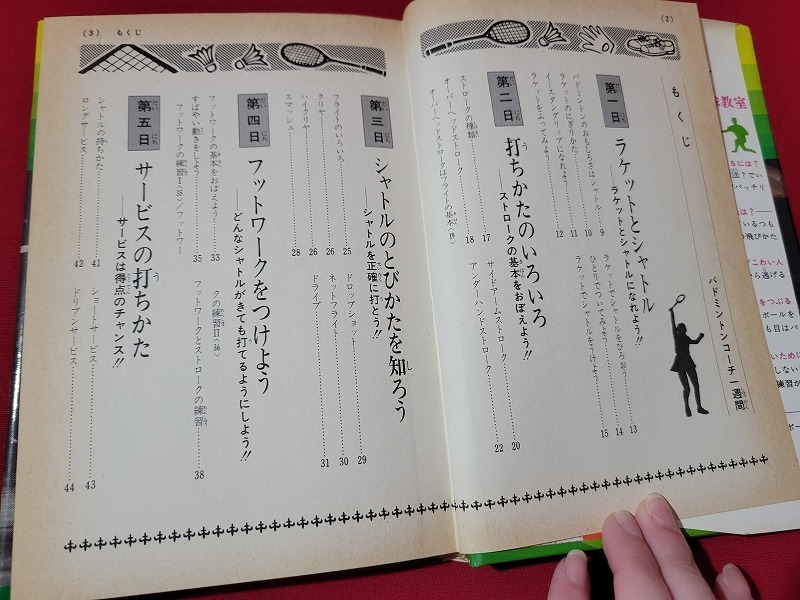 (2)
もくじ
バドミントンコーチ一週間
第一日
ラケットとシャトル
──ラケットとシャトルになれよう!!
バドミントンのおもしろさはシャトル……9
ラケットのにぎりかた……10
イースタングリップになれよう……11
ラケットをふってみよう……12
ラケットでシャトルをひろおう……13
ひとりでついてみよう……14
ラケットでシャトルをうけよう……15
第二日
打ちかたのいろいろ
──ストロークの基本をおぼえよう!!
ストロークの種類……17
オーバーヘッドストローク……18
オーバーヘッドストロークはフライトの基本〈19〉
サイドアームストローク……20
アンダーハンドストローク……22
(3) もくじ
第三日
シャトルのとびかたを知ろう
──シャトルを正確に打とう!!
フライトのいろいろ……25
クリヤー……26
ハイクリヤー……26
スマッシュ……28
ドロップショット……29
ネットフライト……30
ドライブ……31
第四日
フットワークをつけよう
──どんなシャトルがきても打てるようにしよう!!
フットワークの基本をおぼえよう……33
すばやい動きをしよう……35
フットワークの練習Ⅰ〈35〉／フットワー
クの練習Ⅱ〈36〉
フットワークとストロークの練習……38
第五日
サービスの打ちかた
──サービスは得点のチャンス!!
シャトルの持ちかた……41
ロングサービス……42
ショートサービス……43
ドリブンサービス……44
教室